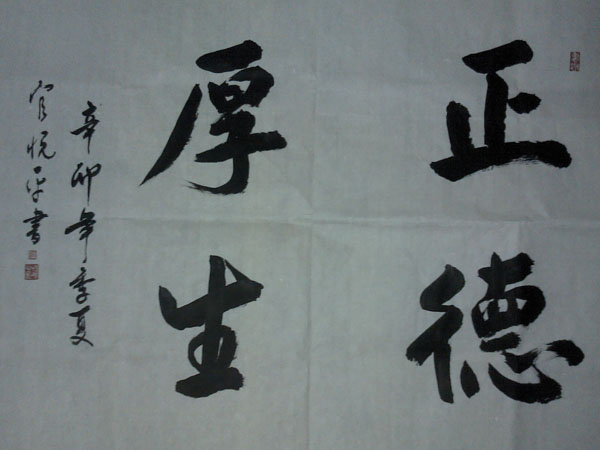 正德
厚生
辛卯年季夏
官悦平書